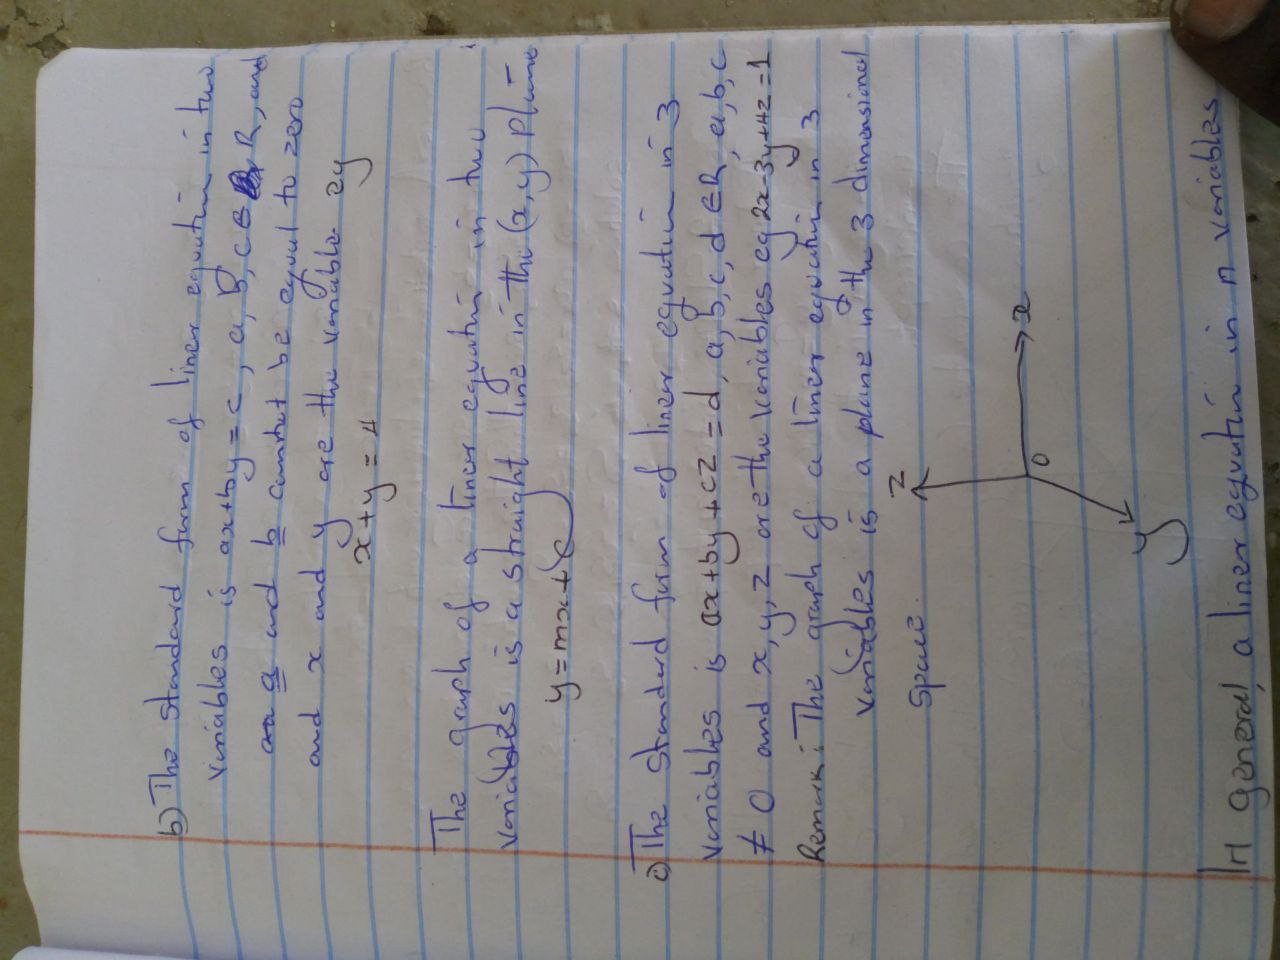 b) The standard form of linear equation in two
variables is ax+by = c, a, b, c ∈ R, and
a and b cannot be equal to zero
and x and y are the variable eg
x + y = 4
The graph of a linear equation in two
variables is a straight line in the (x, y) plane
y = mx + c
c) The standard form of linear equation in 3
variables is ax + by + cz = d, a, b, c, d ∈ R, a, b, c
≠ 0 and x, y, z are the variables eg 2x-3y+4z = 1
Remark: The graph of a linear equation in 3
variables is a plane in the 3 dimensional
space.
z
x
0
y
In general, a linear equation in n variables